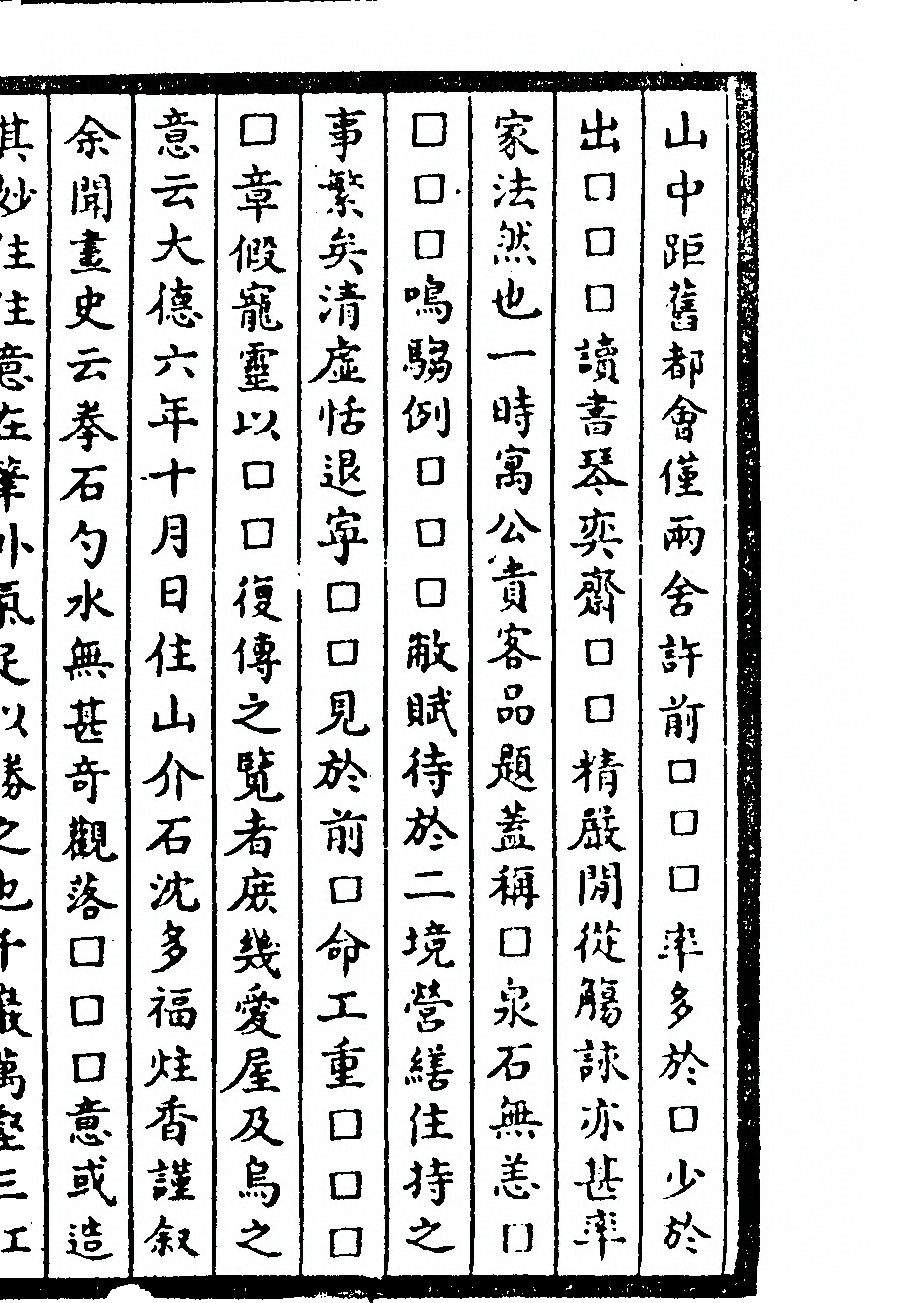 山中距舊都會僅兩舍許前□□□率多於□少於
出□□□讀書琴奕齋□□精嚴閒從觴詠亦甚率
家法然也一時寓公貴客品題蓋稱□泉石無恙□
□□□鳴騶例□□□敝賦待於二境營繕住持之
事繁矣清虛恬退寧□□見於前□命工重□□□
□章假寵靈以□□復傳之覽者庶幾愛屋及烏之
意云大德六年十月日住山介石沈多福炷香謹叙
余聞畫史云拳石勺水無甚奇觀落□□□意或造
其妙往往意在筆外氣足以勝之也千巖萬壑三工